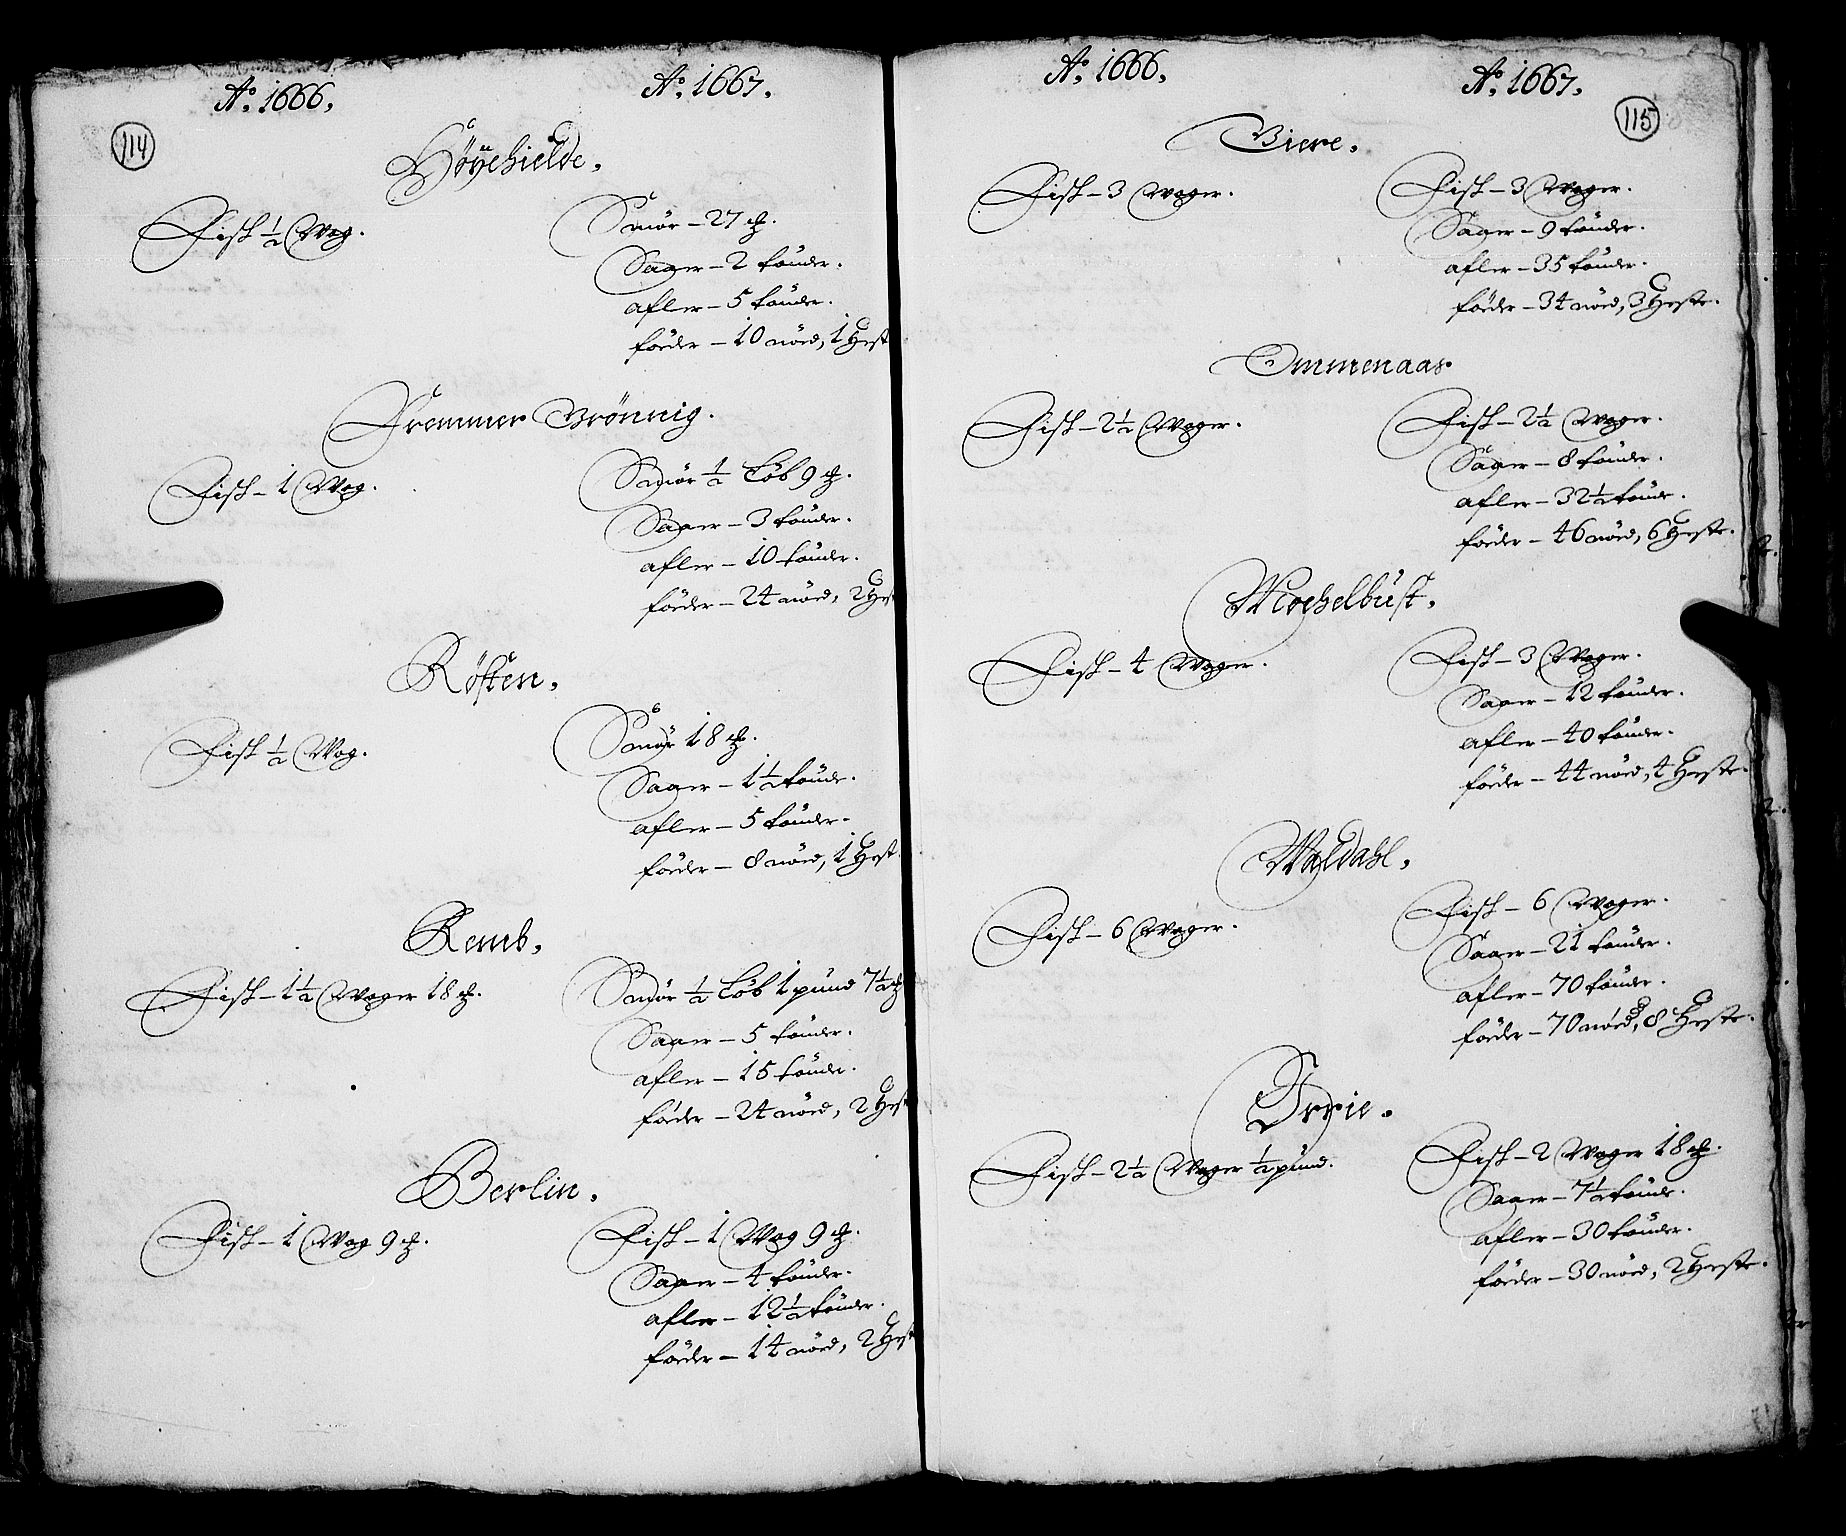 Ao. 1666.
Ao. 1667.
114
Höÿehielde.
Fisk ½ Wog.
Smör – 27 ℔.
Saaer – 2 tönder.
afler – 5 tönder.
föeder – 10 nöed, 1 Hest
Fremmer Brönnig.
Fisk – 1 Wog.
Smör ½ Löb 9 ℔.
Saaer – 3 tönder.
afler – 10 tönder.
föeder – 24 nöed, 2 Hest
Rösten.
Fisk ½ Wog.
Smör 18 ℔.
Saaer – 1½ tönde.
afler – 5 tönder.
föeder – 8 nöed, 1 Hest.
Remb.
Fisk – 1½ Woger 18 ℔.
Smör ½ Löb 1 pund 7½ ℔
Saaer – 5 tönder.
afler – 15 tönder.
föeder – 24 nöed, 2 Hest
Berlin.
Fisk – 1 Wog 9 ℔.
Fisk – 1 Wog 9 ℔.
Saaer – 4 tönder.
afler – 12½ tönder.
föeder – 14 nöed, 2 Hest
Ao. 1666.
Ao. 1667.
115
Biere.
Fisk – 3 Woger.
Fisk – 3 Woger.
Saaer – 9 tönder.
afler – 35 tönder.
föeder – 34 nöed, 3 Heste.
Ommenaas.
Fisk – 2½ Woger.
Fisk – 2½ Woger.
Saaer – 8 tönder.
afler – 32½ tönde.
föeder – 46 nöed, 6 Heste.
Mochelbust.
Fisk – 4 Woger.
Fisk – 3 Woger.
Saaer – 12 tönder.
afler – 40 tönder.
föeder – 44 nöed, 4 Heste.
Woldahl.
Fisk – 6 Woger.
Fisk – 6 Woger.
Saaer – 21 tönder.
afler – 70 tönder.
föeder – 70 nöed, 8 Heste.
Fisk – 2½ Woger ½ pund.
Fisk – 2 Woger 18 ℔.
Saaer – 7½ tönde.
afler – 30 tönder.
föeder – 30 nöed, 2 Heste.